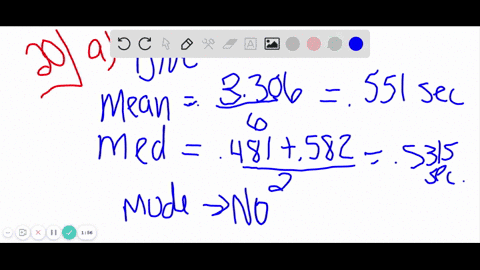 20) a)
Mean = 3.306 / 6 = .551 sec
med = .481 + .582 / 2 = .5315 sec.
Mode → No
1:56